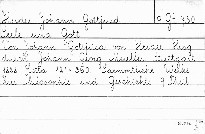 Herder Johann Gottfried
Seele und Gott
von Johann Gottfried von Herder Hrsg
durch Johann Georg Müller Stuttgart
1828 Cotta 12° 360. Saemmtliche Werke
zur Philosophie und Geschichte 9. Theil